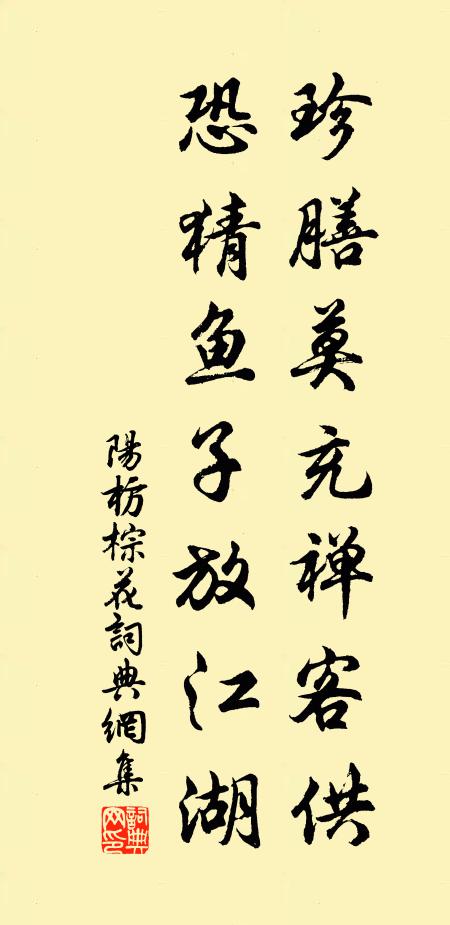 珍膳莫充禅客供
恐猜鱼子放江湖
陽枋棕花詞典網集
詞典網印